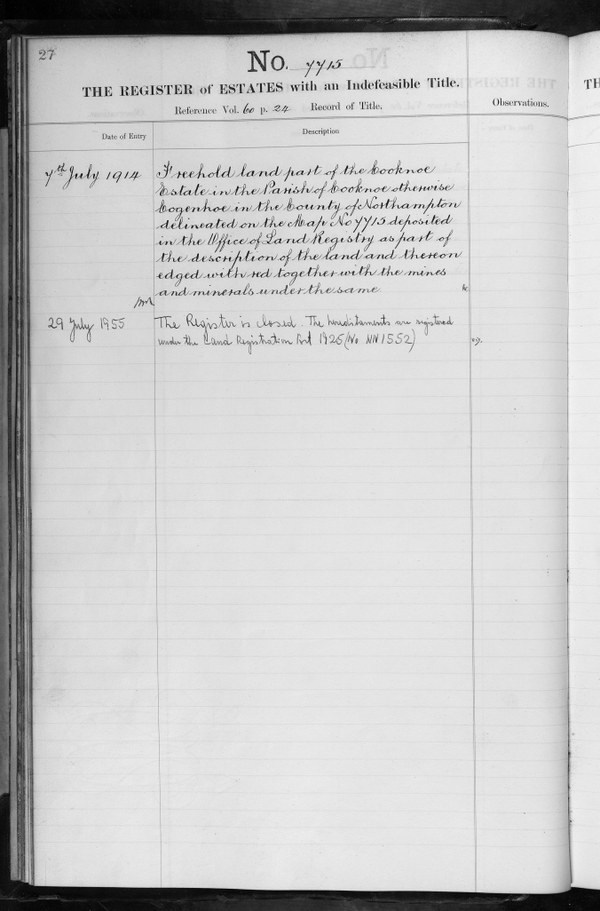 27
No. 7715
THE REGISTER of ESTATES with an Indefeasible Title.
Reference Vol. 60 p. 24 Record of Title.
Observations.
Date of Entry
Description
7th July 1914
Freehold land part of the Cooknoe
Estate in the Parish of Cooknoe otherwise
Cogenhoe in the County of Northampton
delineated on the Map No 7715 deposited
in the Office of Land Registry as part of
the description of the land and thereon
edged with red together with the mines
and minerals under the same
29 July 1955
The Register is closed. The hereditaments are registered
under the Land Registration Act 1925 (No NN1552)
TH